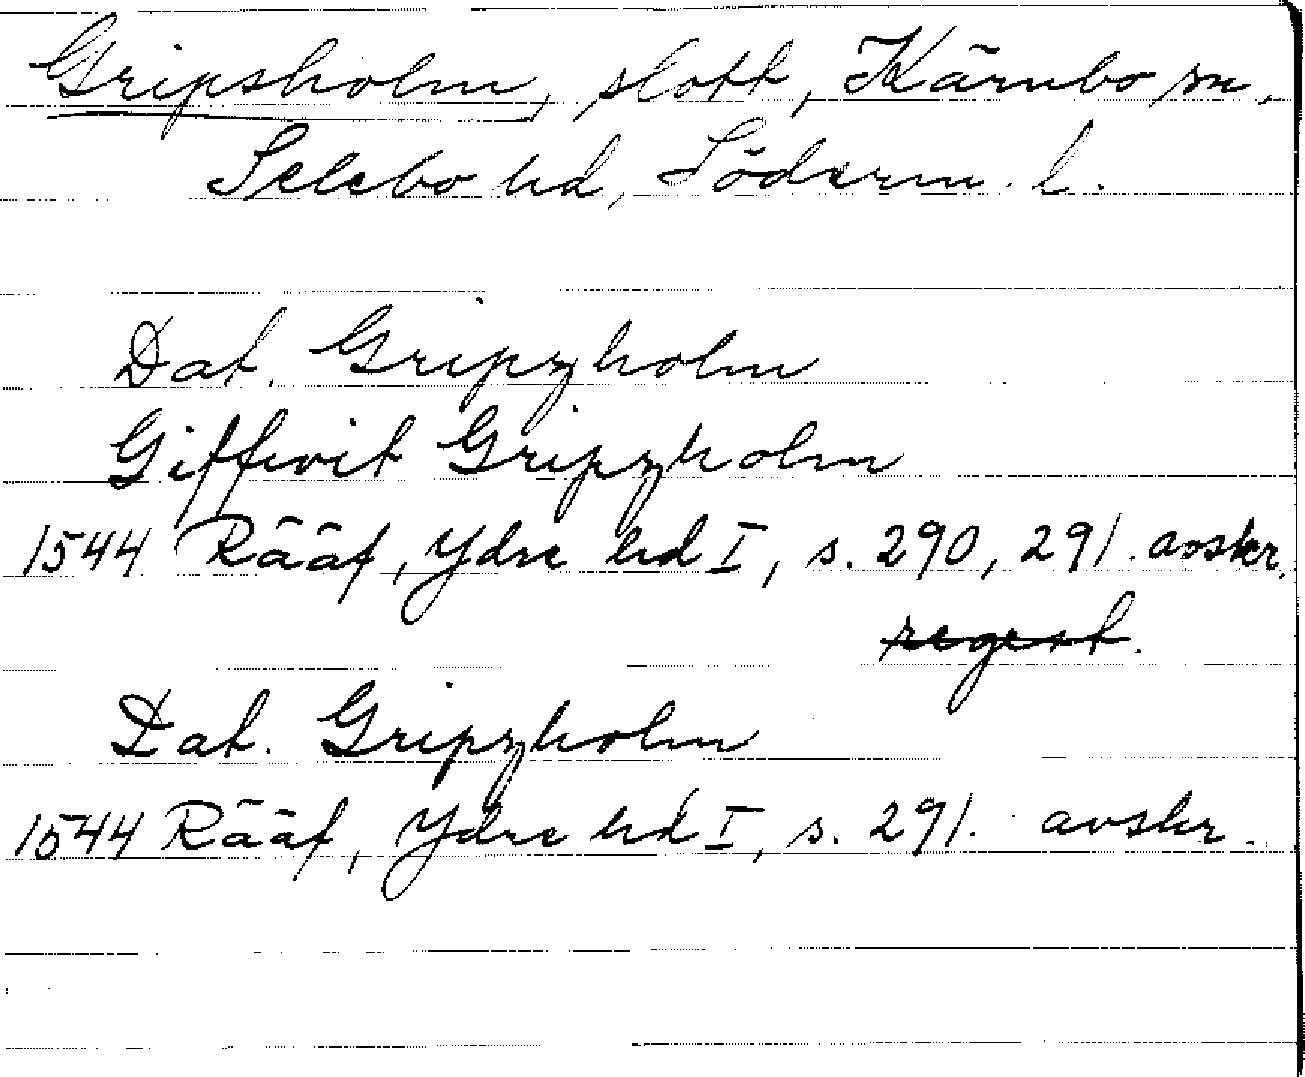 Gripsholm, slott, Kärnbo sn,
Selebo hd, Söderm. l.
Dat. Gripzholm
Giffwit Gripzholm
1544 Rääf, Ydre hd I, s. 290, 291. avskr.
regest.
Dat. Gripzholm
1544 Rääf, Ydre hd I, s. 291. avskr.